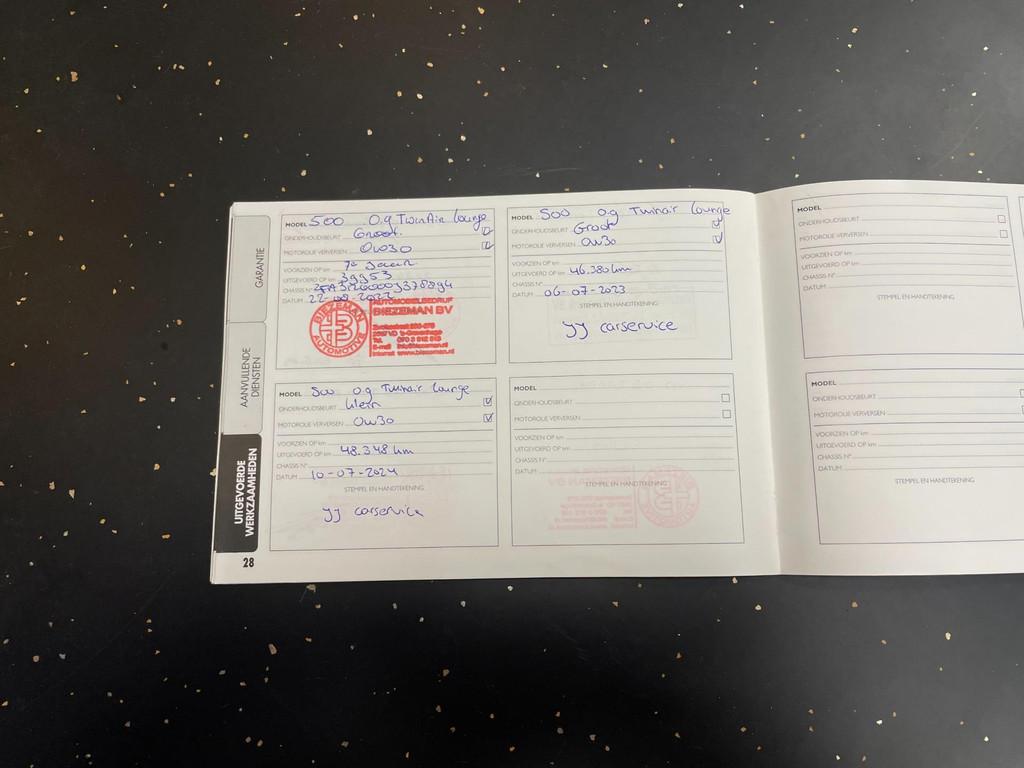 GARANTIE
AANVULLENDE
DIENSTEN
UITGEVOERDE
WERKZAAMHEDEN
28
MODEL 500 0.9 TwinAir lounge
ONDERHOUDSBEURT Groot.
MOTOROLIE VERVERSEN 0w30
VOORZIEN OP km 7e Jaar
UITGEVOERD OP km 39953
CHASSIS N°
DATUM
BIEZEMAN
AUTOMOTIVE
AUTOMOBIELBEDRIJF
BIEZEMAN BV
E-mail info@biezeman.nl
Internet www.biezeman.nl
MODEL 500 0.9 Twinair lounge
ONDERHOUDSBEURT Groot
MOTOROLIE VERVERSEN 0w30
VOORZIEN OP km
UITGEVOERD OP km 46.380 km
CHASSIS N°
DATUM 06-07-2023
STEMPEL EN HANDTEKENING
YY carservice
MODEL 500 0.9 Twinair lounge
ONDERHOUDSBEURT klein
MOTOROLIE VERVERSEN 0w30
VOORZIEN OP km
UITGEVOERD OP km 48.348 km
CHASSIS N°
DATUM 10-07-2024
STEMPEL EN HANDTEKENING
YY carservice
MODEL
ONDERHOUDSBEURT
MOTOROLIE VERVERSEN
VOORZIEN OP km
UITGEVOERD OP km
CHASSIS N°
DATUM
STEMPEL EN HANDTEKENING
MODEL
ONDERHOUDSBEURT
MOTOROLIE VERVERSEN
VOORZIEN OP km
UITGEVOERD OP km
CHASSIS N°
DATUM
STEMPEL EN HANDTEKENING
MODEL
ONDERHOUDSBEURT
MOTOROLIE VERVERSEN
VOORZIEN OP km
UITGEVOERD OP km
CHASSIS N°
DATUM
STEMPEL EN HANDTEKENING